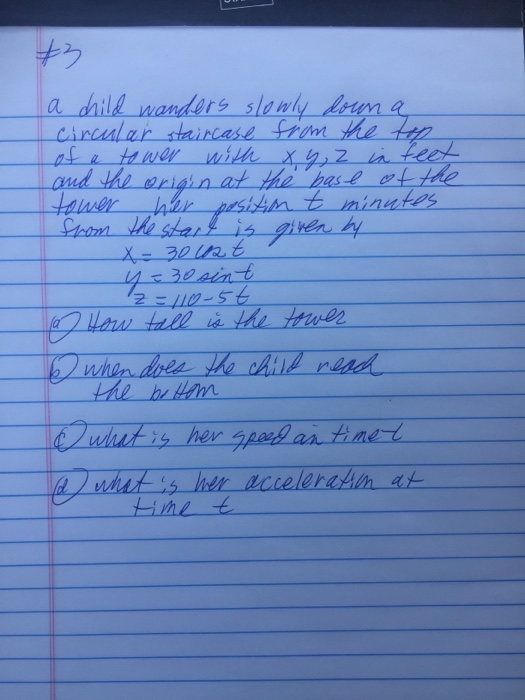 #3
a child wanders slowly down a
circular staircase from the top
of a tower with x y, z in feet
and the origin at the base of the
tower her position t minutes
from the start is given by
x = 30 cos t
y = 30 sin t
z = 110 - 5t
(a) How tall is the tower
(b) when does the child reach
the bottom
(c) what is her speed at time t
(d) what is her acceleration at
time t